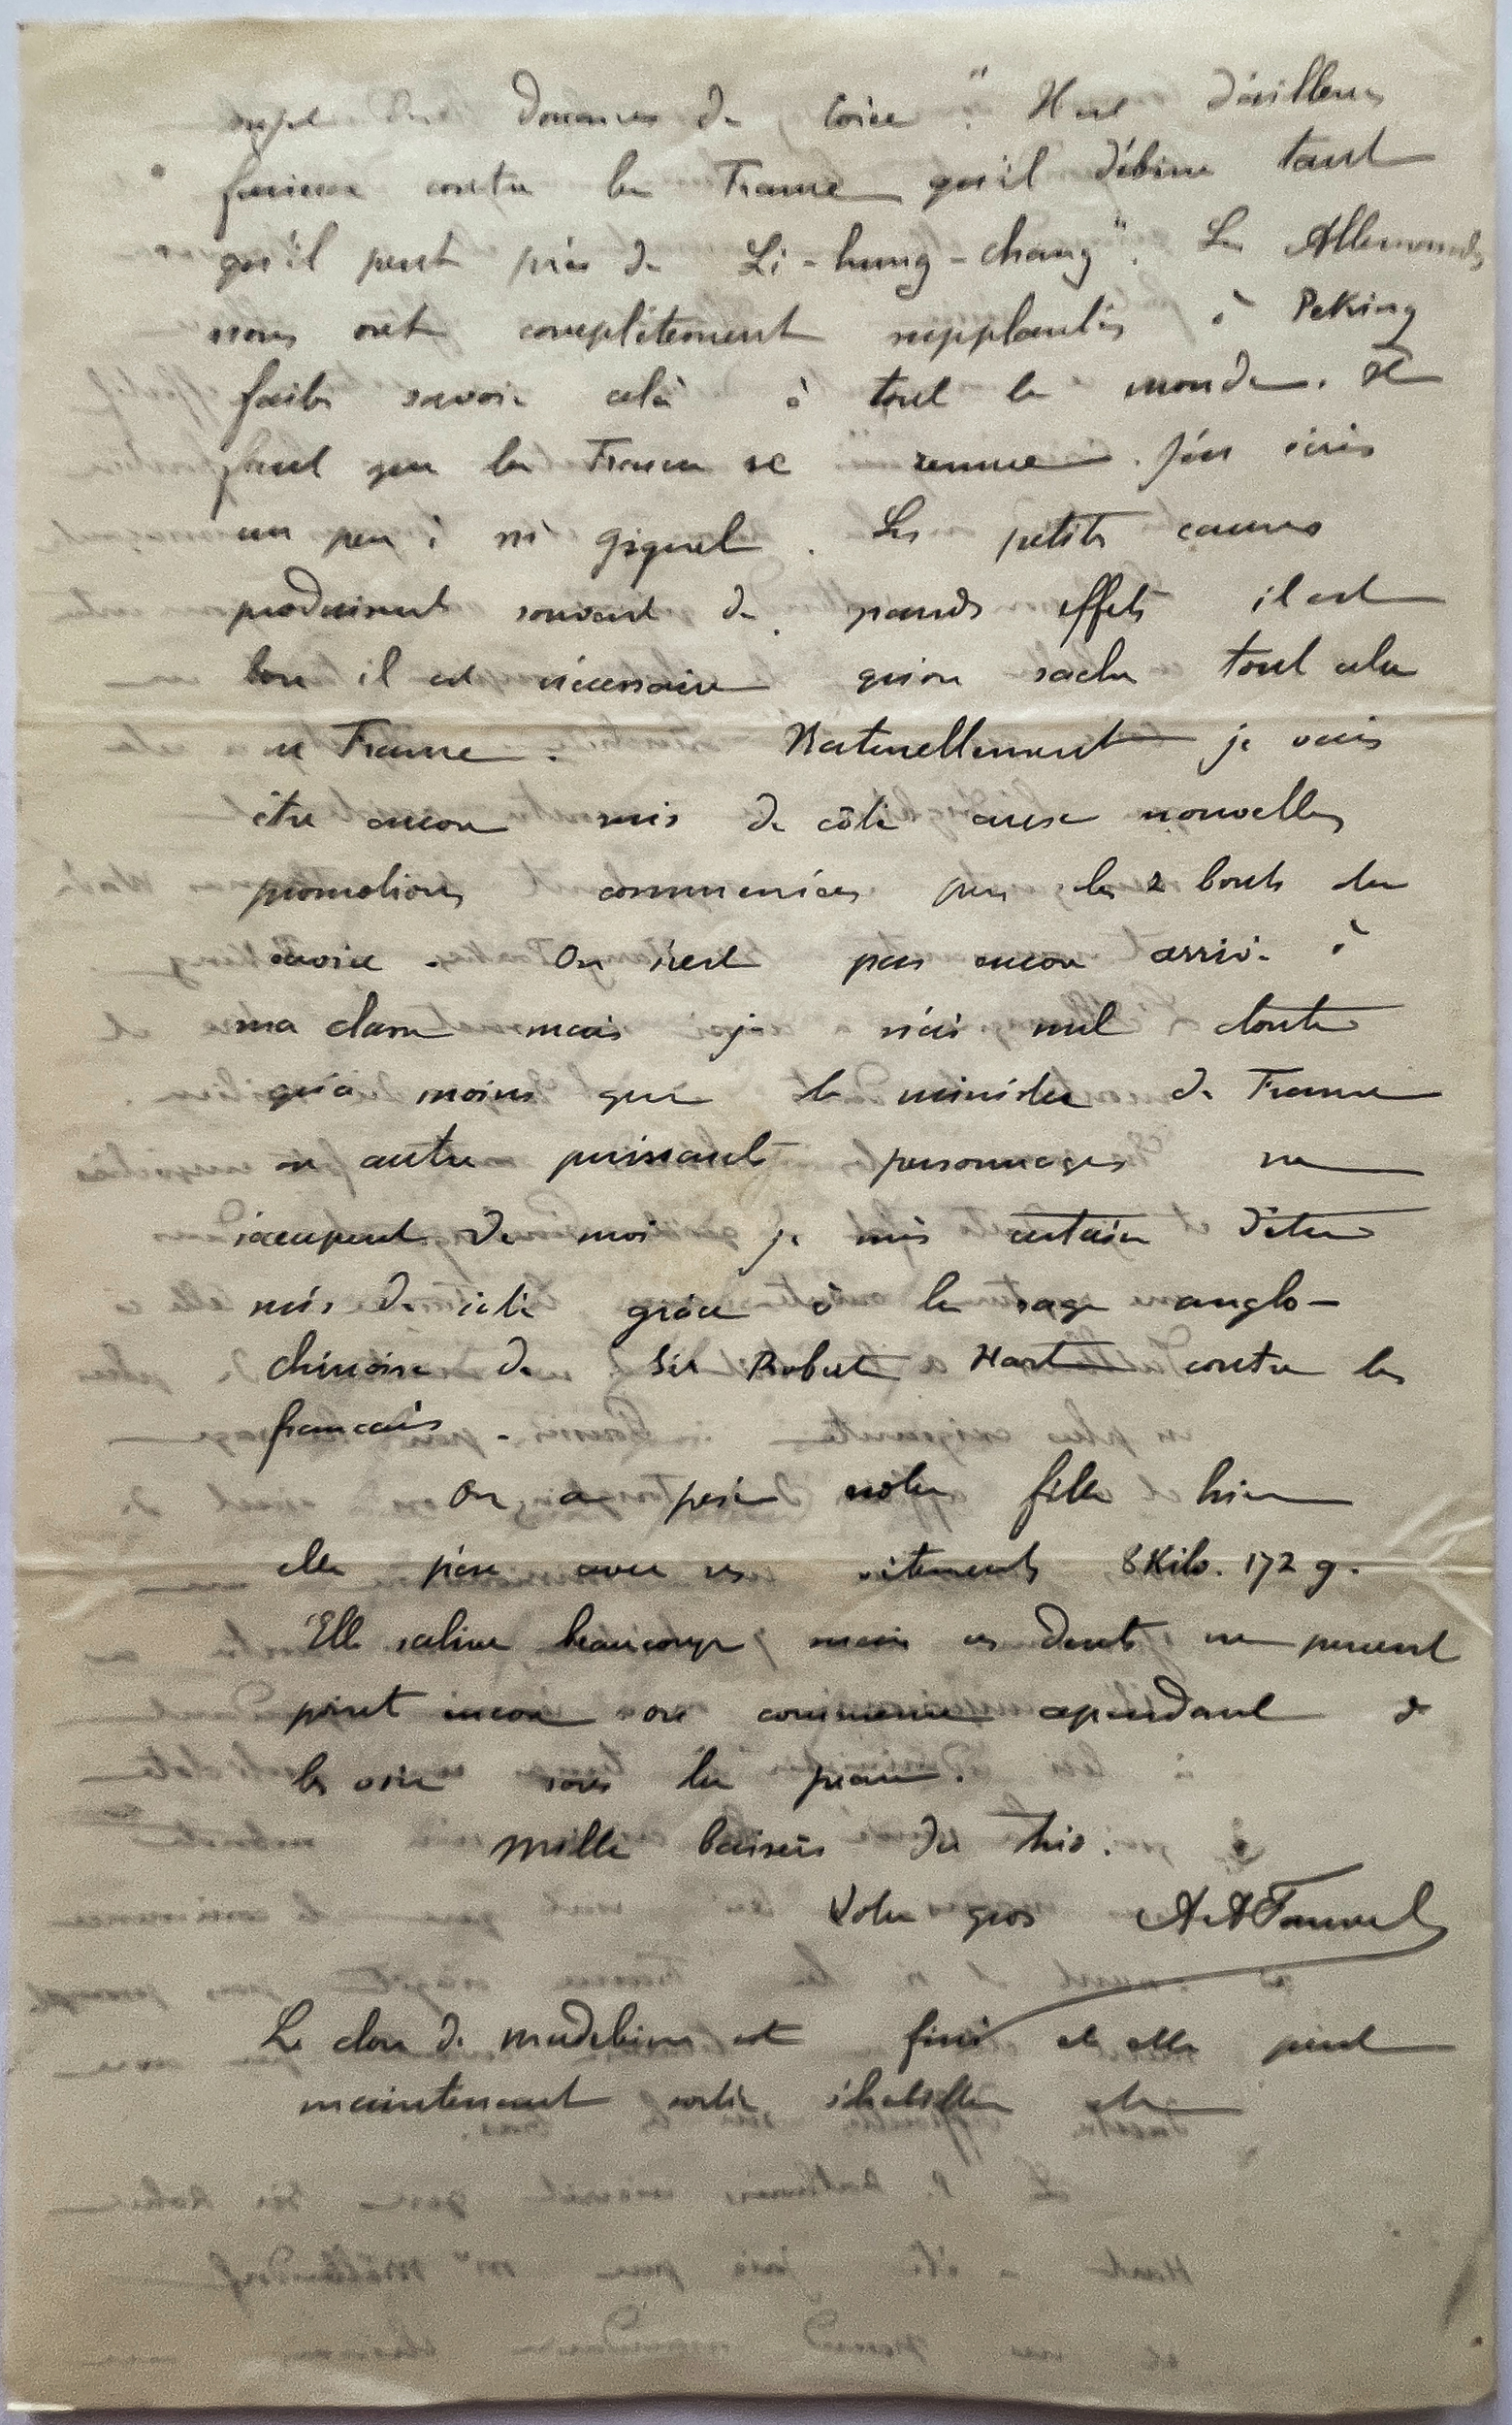 sujet des Douanes de Corée". Hart d'ailleurs
furieux contre la France qu'il débine tant
qu'il peut près de Li-hung-chang". Les Allemands
nous ont complètement supplantés à Peking
faites savoir celà à tout le monde. Il
faut que la France se remue. J'en écris
un peu à Mr Giquel. Les petites causes
produisent souvent de grands effets il est
bon il est nécessaire qu'on sache tout cela
en France. Naturellement je vais
être encore mis de côté aux nouvelles
promotions commencées par les 2 bouts du
service. On n'est pas encore arrivé à
ma classe mais je n'ai nul doute
qu'à moins que le ministre de France
ou autres puissants personnages ne
s'occupent de moi je suis certain d'être
mis de côté grâce à la rage anglo-
chinoise de Sir Robert Hart contre les
français.
On a pesé notre fille hier
elle pèse avec ses vêtements 8 Kilo. 172 g.
Elle salive beaucoup mais ses dents ne percent
point encore on commence cependant à
les voir sous la peau.
Mille baisers du trio.
Votre gros AAFauvel
Le clou de Madeleine est fini et elle peut
maintenant sortir s'habiller etc